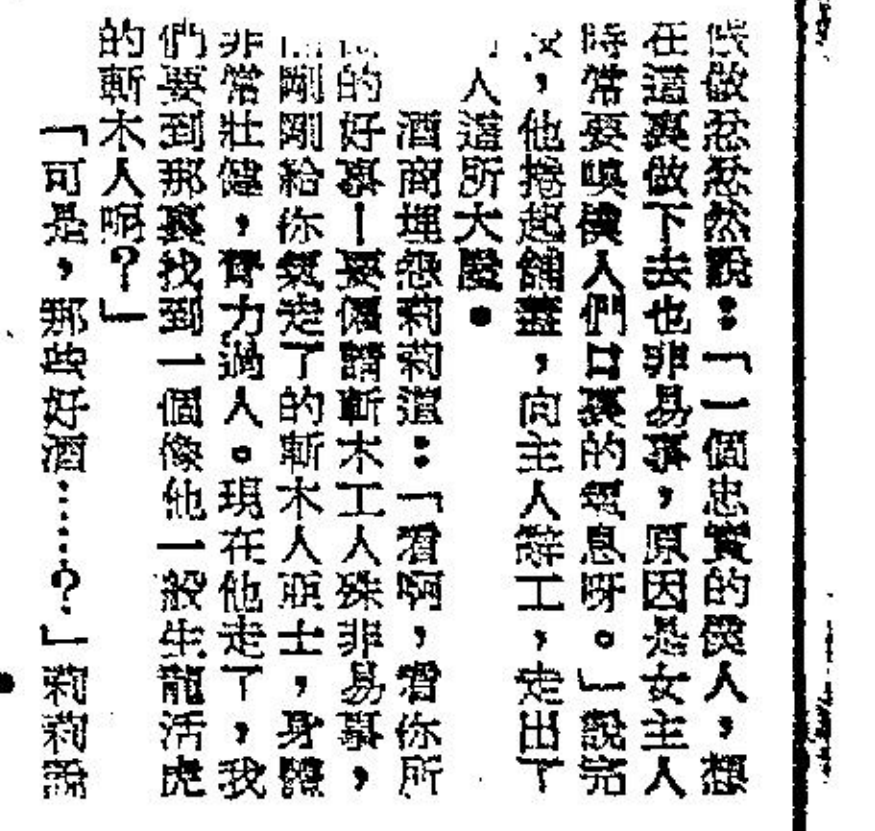 僕做忿忿然說：「一個忠實的僕人，想
在這裏做下去也非易事，原因是女主人
時常要嗅僕人們口裏的氣息呀。」說完
，他捲起鋪蓋，向主人辭工，走出了
人這所大廈。
酒商埋怨莉莉道：「看啊，看你所
的好事！要僱請斬木工人殊非易事，
剛剛給你氣走了的斬木人亞士，身體
非常壯健，膂力過人。現在他走了，我
們要到那裏找到一個像他一般生龍活虎
的斬木人呢？」
「可是，那些好酒……？」莉莉說